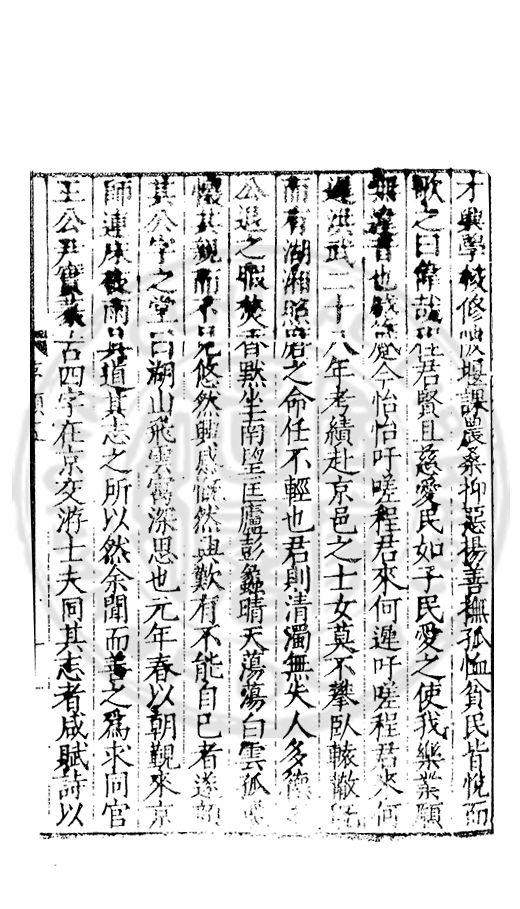 才興學校修陂堰課農桑抑惡揚善撫孤恤貧民皆悅而
歌之曰偉哉程君賢且慈愛民如子民愛之使我樂業願
無違昔也今怡怡吁嗟程君來何遲吁嗟程君來何
遲洪武二十八年考績赴京邑之士女莫不攀臥轅轍既
而有湖湘之命任不輕也君則清濁無失人多德之
公退之暇焚香默坐南望匡廬彭蠡晴天蕩蕩白雲孤飛
懷其親而不見悠然興感慨然興歎有不能自已者遂
其公字之堂曰湖山飛雲寓深思也元年春以朝覲來京
師連床夜雨日道其志之所以然余聞而善之為求同官
王公尹實篆古四字在京交游士夫同其志者咸賦詩以